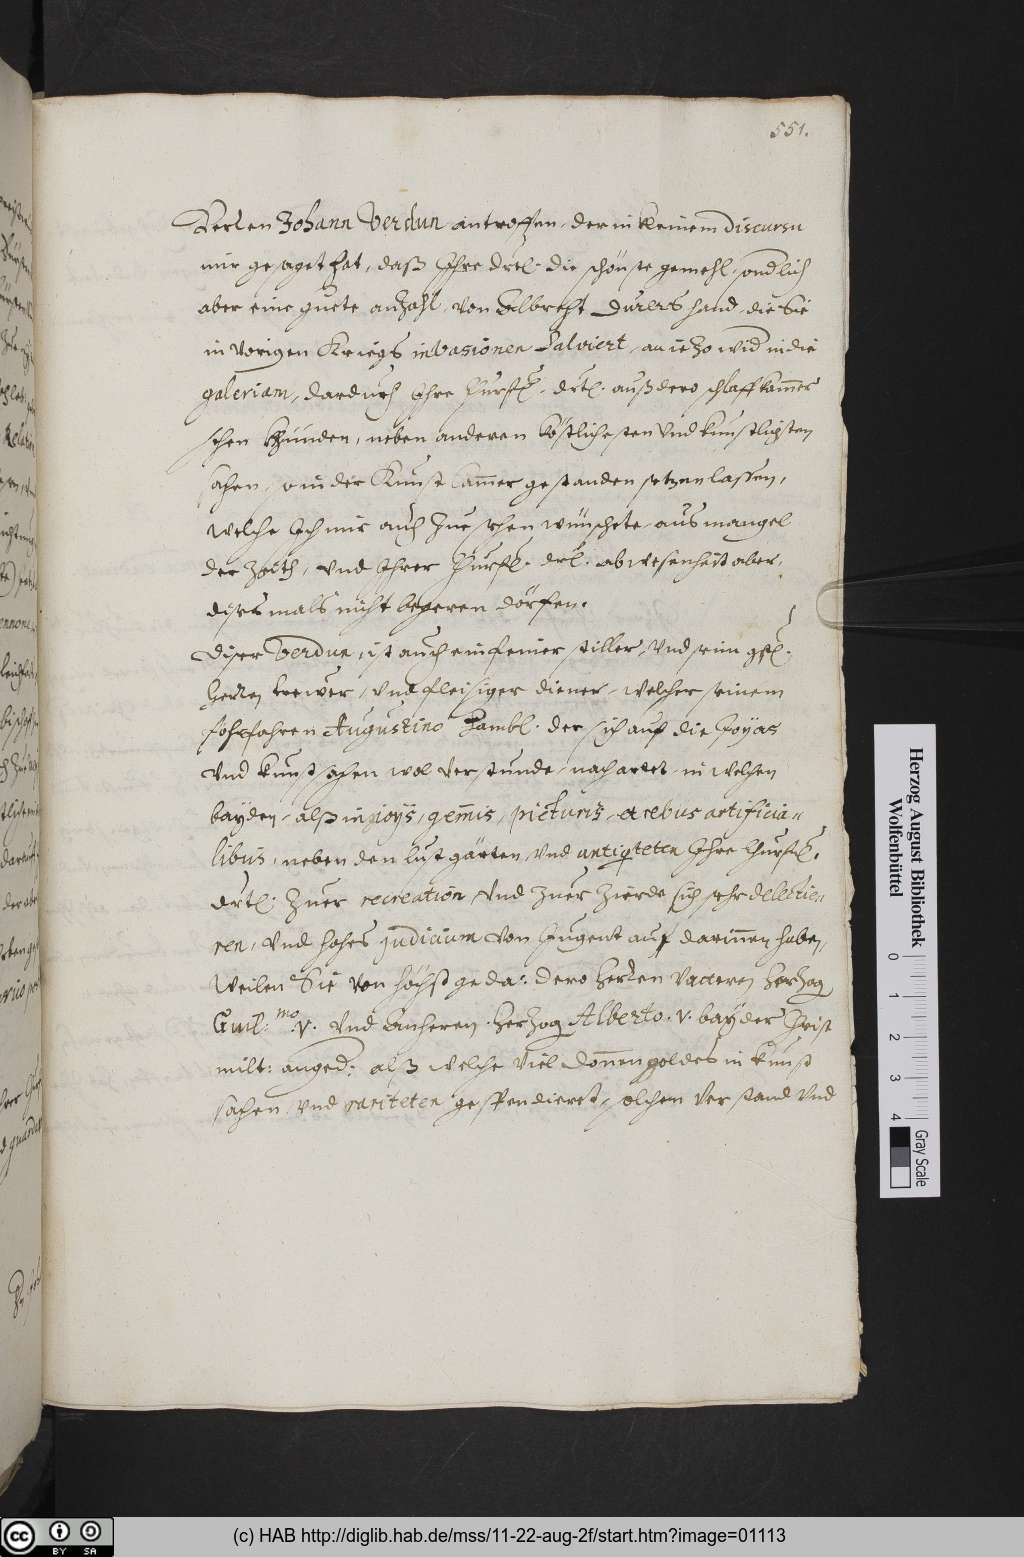 551.
Herlen Johann Verdun antroffen, der in keinem discursu
mir gesaget hat, daß Ihre drtl: die schönste gemehl, sondlich
aber eine guete anzahl, von Albrecht Dürers hand, die Sie
in vorigen Kriegs invasionen salviert, an iezo wid in die
galeriam, dardurch Ihre Churfl. drtl. auß dero schlaff kammer
sehen khünden, neben anderen köstlichesten vnd kunstlichsten
sachen, so in der Kunst Cammer gestanden setzen lassen,
welche Ich mir auch zue sehen wünschete, aus mangel
der Zeith, vnd Ihrer Churfl. drl. abwesenheit aber,
dises mals nicht begeren dörfen.
Diser Verdun, ist auch ein feiner stiller, vnd seim gstl.
herlen trewer, vnd fleisiger diener, welcher seinem
forfahren Augustino Zambl. der sich auf die Joyas
vnd kunst sachen wol verstunde, nacharttet, in welchen
bayden, alß in gioys, gemis, picturis, et rebus artificia=
libus, neben den Lust gärten, vnd antiqteten Ihre Churfl.
drtl: zuer recreation, vnd zuer Zierde sich sehr dellectie=
ren, vnd hohes judicium von Jugent auf darinnen haben,
Weilen Sie von höchst geda: dero herlen vatteren herzog
Guil: mo. V. vnd Anheren herzog Alberto. V. bayder Christ
milt: anged: alß welche viel Donnen goldes in kunst
sachen, vnd rariteten gespendieret, solchen verstand vnd
Herzog August Bibliothek
Wolfenbüttel
0 1 2 3 4
Gray Scale
cc BY SA
(c) HAB http://diglib.hab.de/mss/11-22-aug-2f/start.htm?image=01113